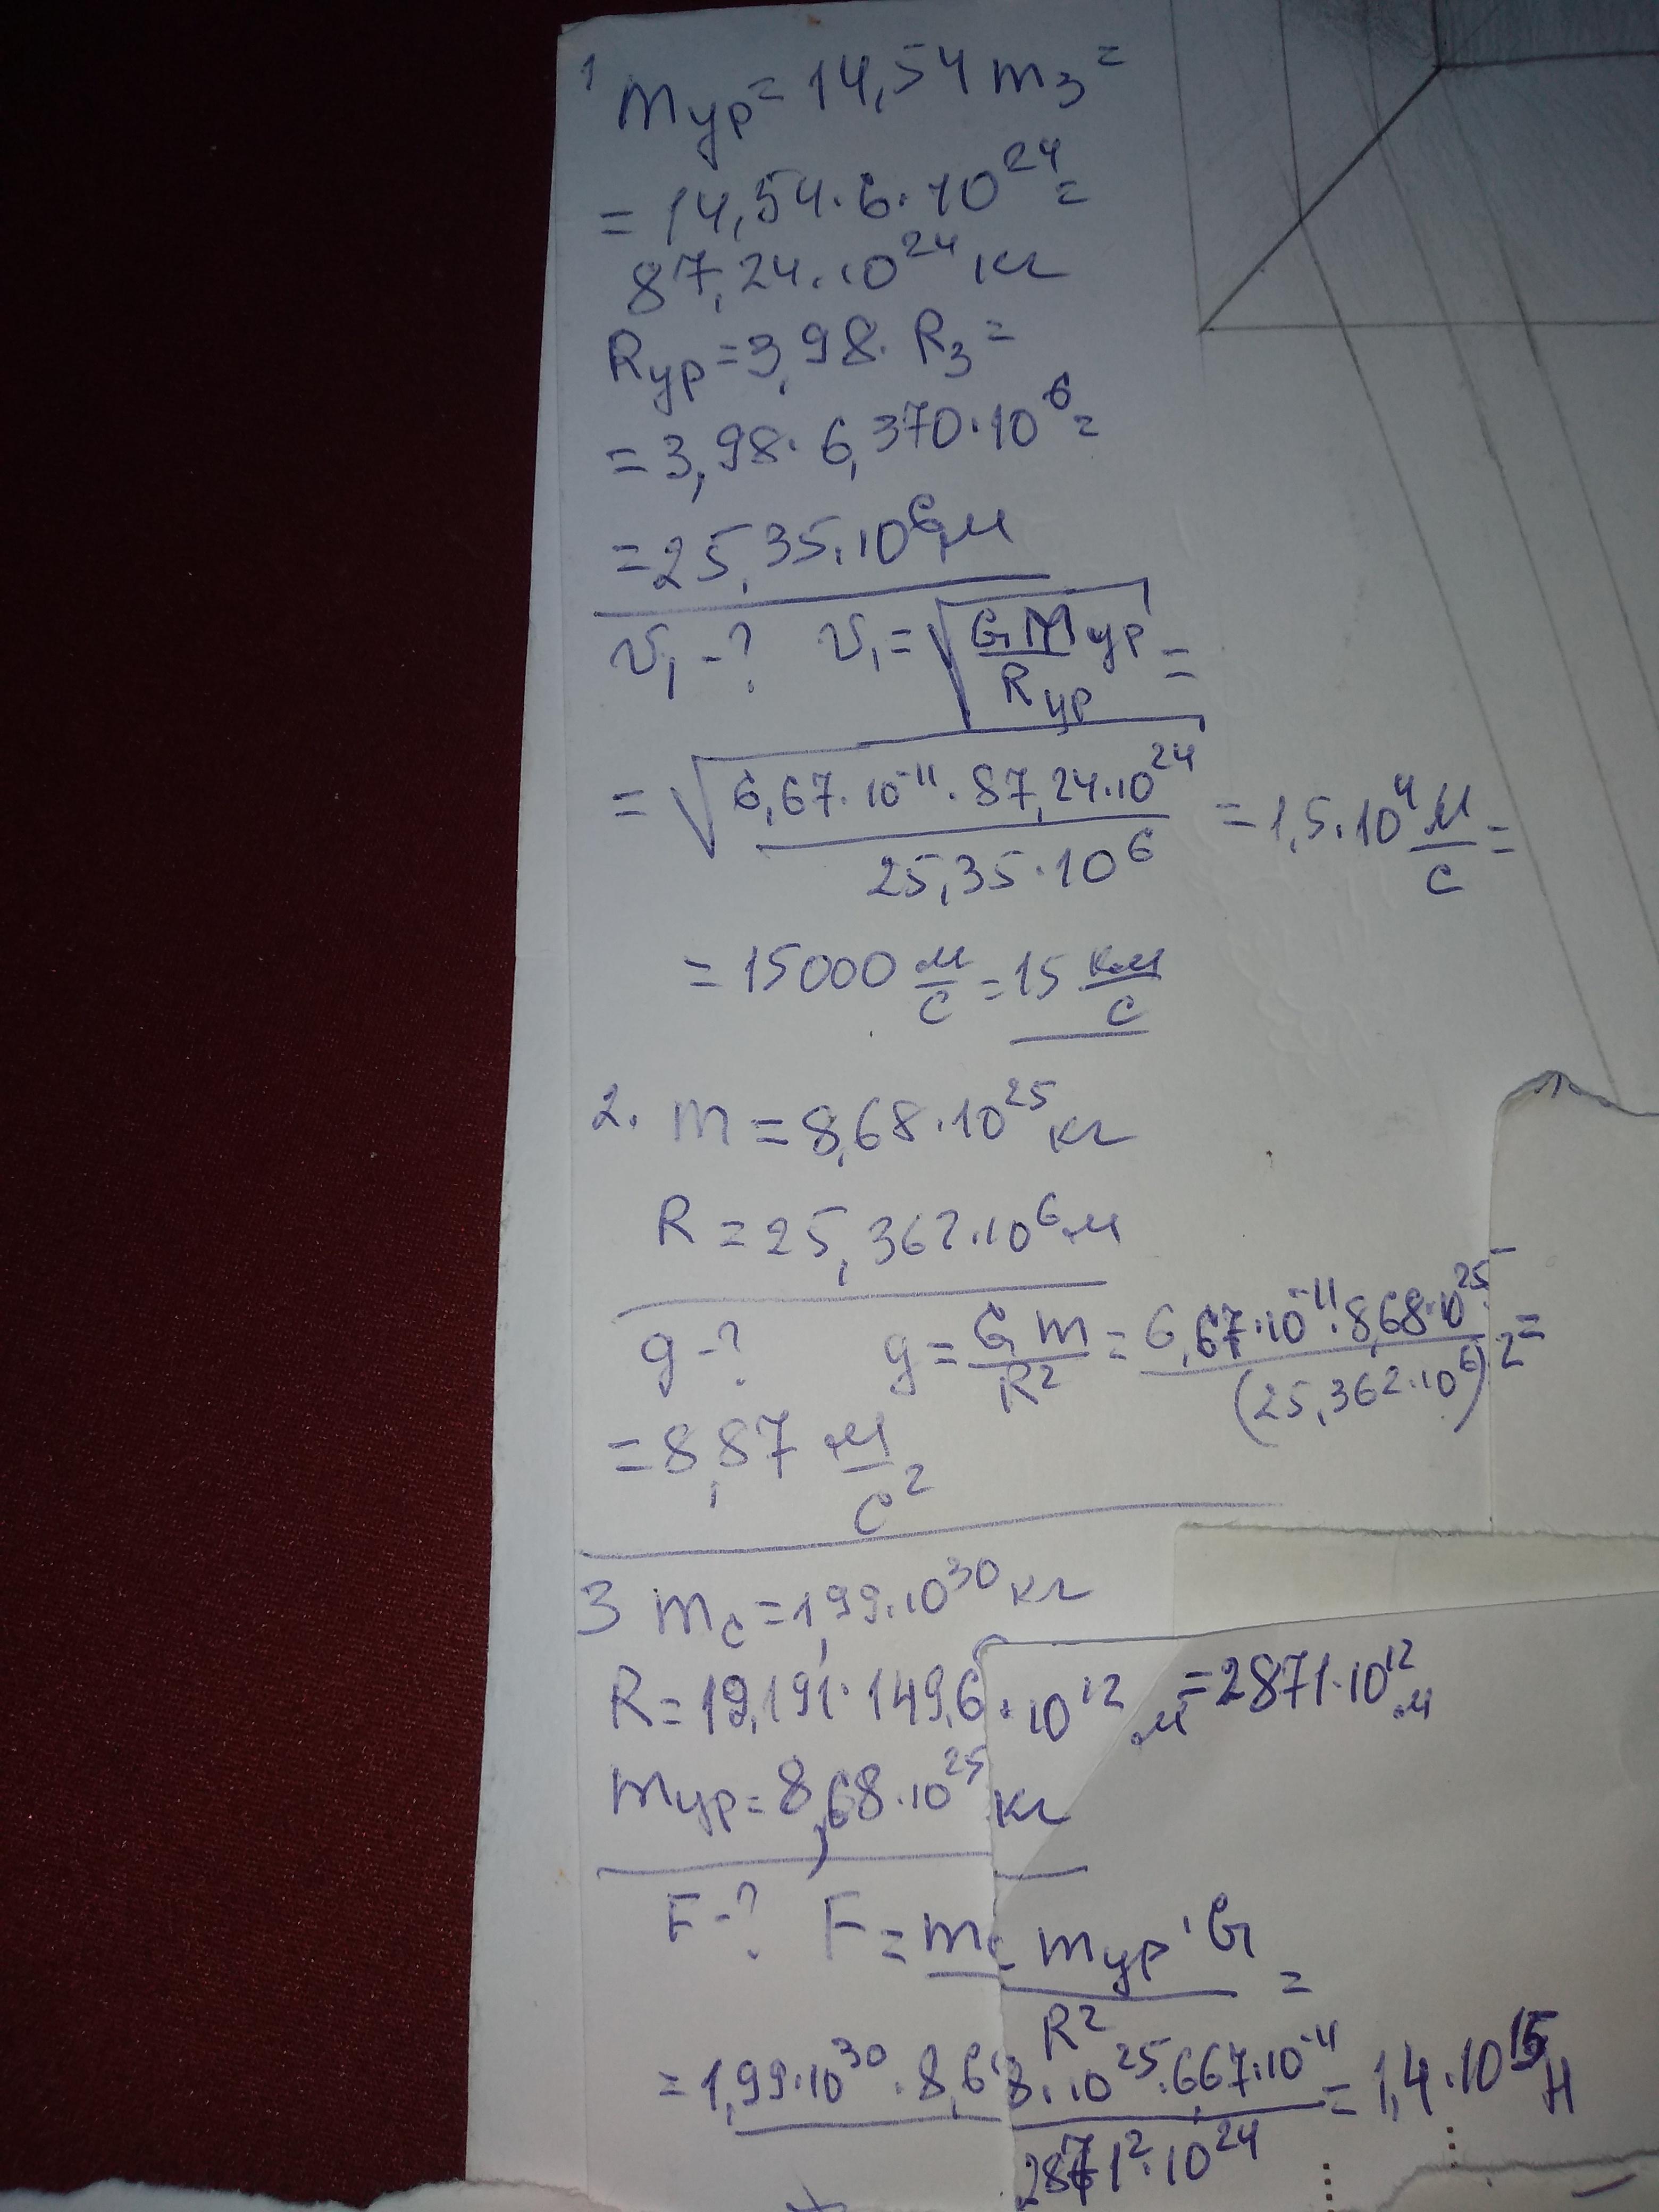 1 mур = 14,54 m3 =
= 14,54 · 6 · 10^24 =
87,24 · 10^24 кг
Rур = 3,98 · R3 =
= 3,98 · 6,370 · 10^6 =
= 25,35 · 10^6 м
v1 - ? v1 = √(G Mур / Rур) =
= √(6,67 · 10^-11 · 87,24 · 10^24 / 25,35 · 10^6) = 1,5 · 10^4 м/с =
= 15000 м/с = 15 км/с
2. m = 8,68 · 10^25 кг
R = 25,362 · 10^6 м
g - ? g = G m / R^2 = 6,67 · 10^-11 · 8,68 · 10^25 / (25,362 · 10^6)^2 =
= 8,87 м/с^2
3 mс = 1,99 · 10^30 кг
R = 19,191 · 149,6 · 10^12 м = 2871 · 10^12 м
mур = 8,68 · 10^25 кг
F - ? F = mс mур · G / R^2 =
= 1,99 · 10^30 · 8,68 · 10^25 · 6,67 · 10^-11 / 2871^2 · 10^24 = 1,4 · 10^15 Н